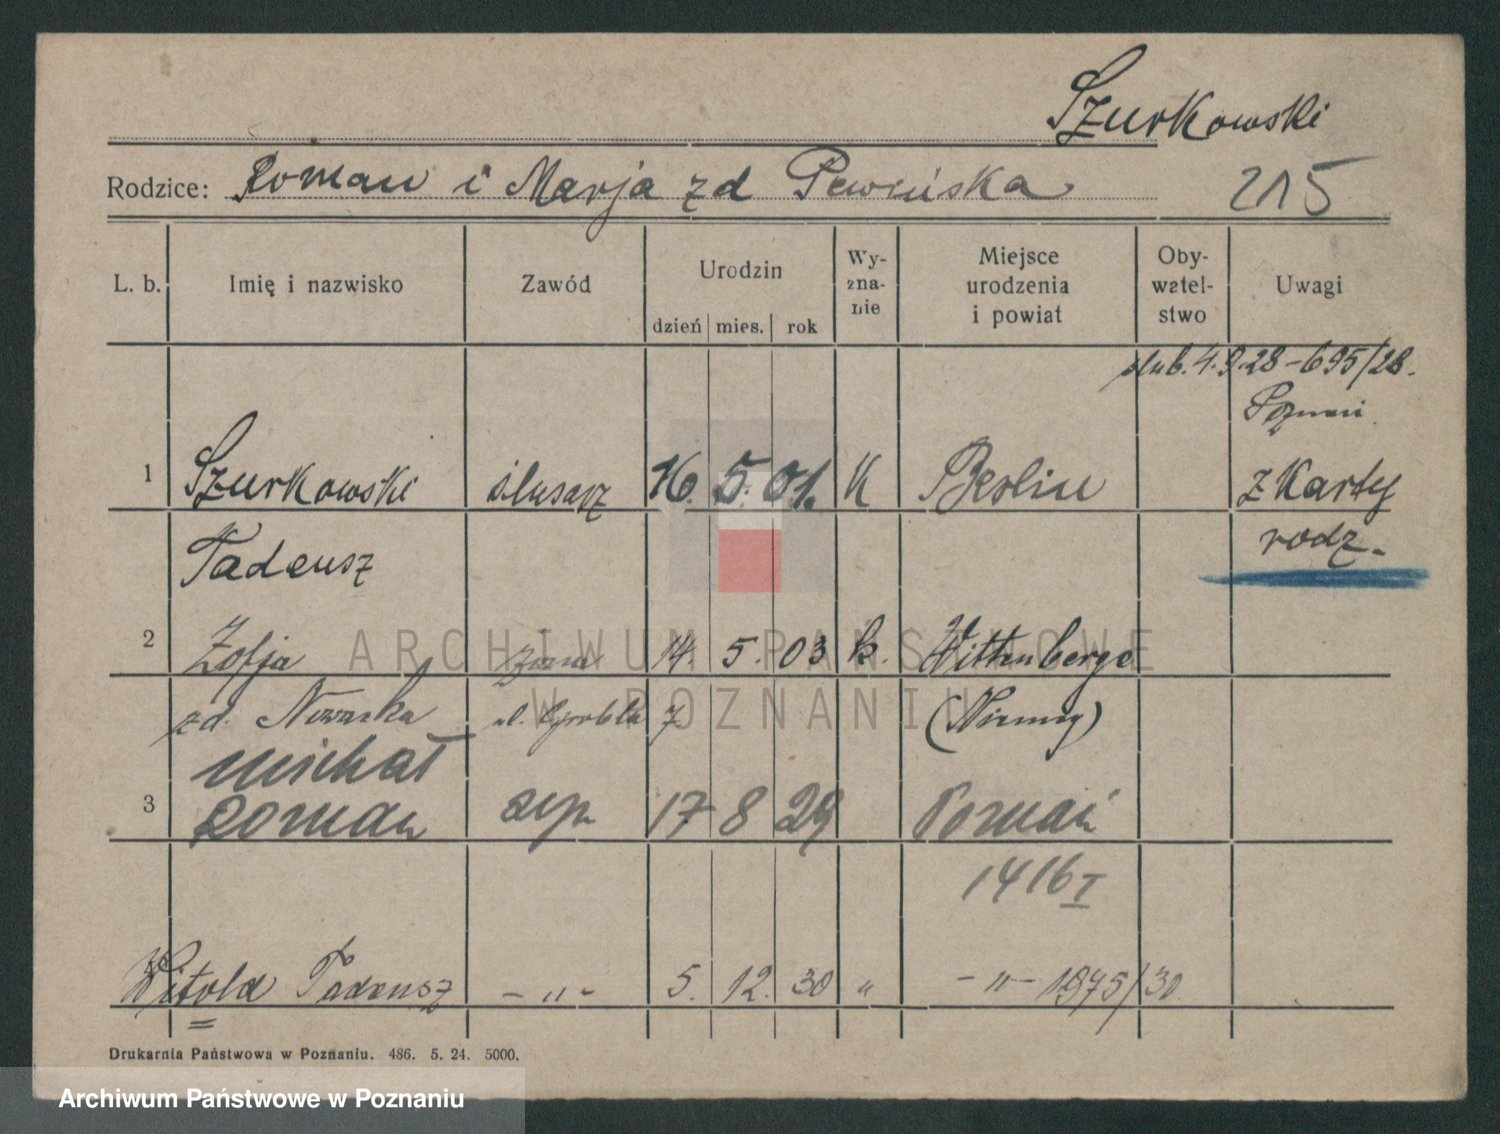 Szurkowski
Rodzice: Roman i Marja zd
215
L. b. Imię i nazwisko Zawód Urodzin Wy-zna-nie Miejsce urodzenia i powiat Oby-watel-stwo Uwagi
dzień mies. rok
ślub. 4.9.28 - 695/28.
Poznań
1 Szurkowski ślusarz 16. 5. 01. K Berlin z Karty
Tadeusz rodz.
2 Zofja żona 14. 5. 03 k. Wittenberge
zd. ul. Grobla 7 (Niemcy)
Michał
3 Roman syn 17 8 29 Poznań
1416 I
Witold Tadeusz - „ - 5. 12. 30 „ - „ - 1875/30
Drukarnia Państwowa w Poznaniu. 486. 5. 24. 5000.
ARCHIWUM PAŃSTWOWE
W POZNANIU
Archiwum Państwowe w Poznaniu